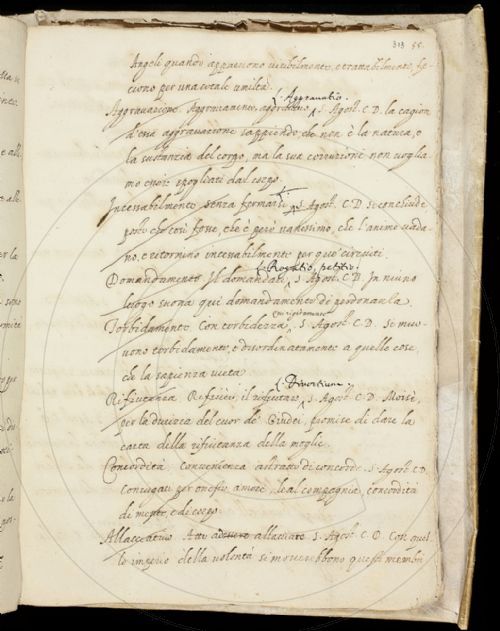 313 55.
Angeli quando appaeuono uisibilmente, e trattabilmente, fa-
ceuono per una cotale umiltà.
( Aggrauatio.
Aggrauazione. Aggrauamento, S. Agost. C. D. la cagion
d'essa aggrauazione sappiendo che non è la natura, o
la sustanzia del corpo, ma la sua corruzione non uoglia-
mo essere spogliati dal corpo.
Incessabilmente, senza fermarsi, S. Agost. C. D. se conchiude
però che così fosse, che è però uanissimo, che l'anime uada-
no, e ritornino incessabilmente per quei circuiti.
( Rogatio, petitio.
Domandamento Il domandare, S. Agost. C. D. In niuno
luogo suona qui domandamento di perdonanza.
Torbidamente Con torbidezza, S. Agost. C. D. si muo-
uono torbidamente, e disordinatamente a quelle cose,
che la sapienza uieta.
( Diuortium.
Rifiutanza Refiuto, il rifiutare, S. Agost. C. D. Moisè,
per la durizia del cuor de' Giudei, promise di dare la
carta della rifiutanza della moglie.
Concordità Conuenenza astratto di concorde. S. Agost. C. D.
Coniugati per onesto amore, leal compagnia, concordità
di mente, e di corpo.
Allacciatiuo Atto allacciare S. Agost. C. D. Con quel-
lo imperio della uolontà si mouerebbono questi membri